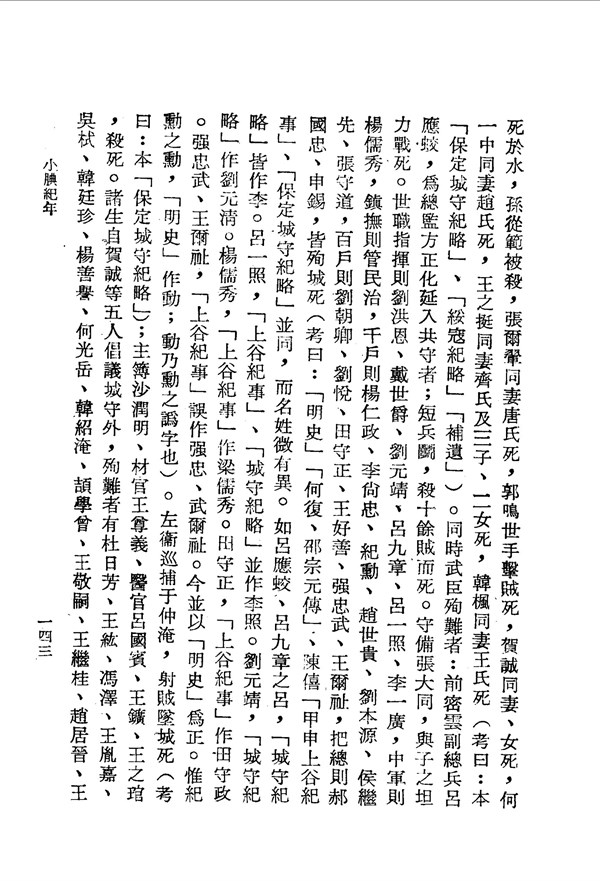 死於水，孫從範被殺，張爾翬同妻唐氏死，郭鳴世手擊賊死，賀誠同妻、女死，何
一中同妻趙氏死，王之挺同妻齊氏及三子、二女死，韓楓同妻王氏死（考曰：本
「保定城守紀略」、「綏寇紀略」「補遺」）。同時武臣殉難者：前密雲副總兵呂
應蛟，爲總監方正化延入共守者；短兵鬭，殺十餘賊而死。守備張大同，與子之坦
力戰死。世職指揮則劉洪恩、戴世爵、劉元靖、呂九章、呂一照、李一廣，中軍則
楊儒秀，鎮撫則管民治，千戶則楊仁政、李尙忠、紀動、趙世貴、劉本源、侯繼
先、張守道，百戶則劉朝卿、劉悅、田守正、王好善、强忠武、王爾祉，把總則郝
國忠、申錫，皆殉城死（考曰：「明史」「何復、邵宗元傳」、陳僖「甲申上谷紀
事」、「保定城守紀略」並同，而名姓微有異。如呂應蛟、呂九章之呂，「城守紀
略」皆作李。呂一照，「上谷紀事」、「城守紀略」並作李照。劉元靖，「城守紀
略」作劉元清。楊儒秀，「上谷紀事」作梁儒秀。田守正，「上谷紀事」作田守政
。强忠武、王爾祉，「上谷紀事」誤作强忠、武爾祉。今並以「明史」爲正。惟紀
勳之勳，「明史」作動；動乃勳之譌字也）。左衞巡捕于仲淹，射賊墜城死（考
曰：本「保定城守紀略」）；主簿沙潤明、材官王尊義、醫官呂國賓、王鑛、王之琯
，殺死。諸生自賀誠等五人倡議城守外，殉難者有杜日芳、王紘、馮澤、王胤嘉、
吳栻、韓廷珍、楊善譽、何光岳、韓紹淹、頡學曾、王敬嗣、王繼桂、趙居晉、王
小腆紀年
一四三